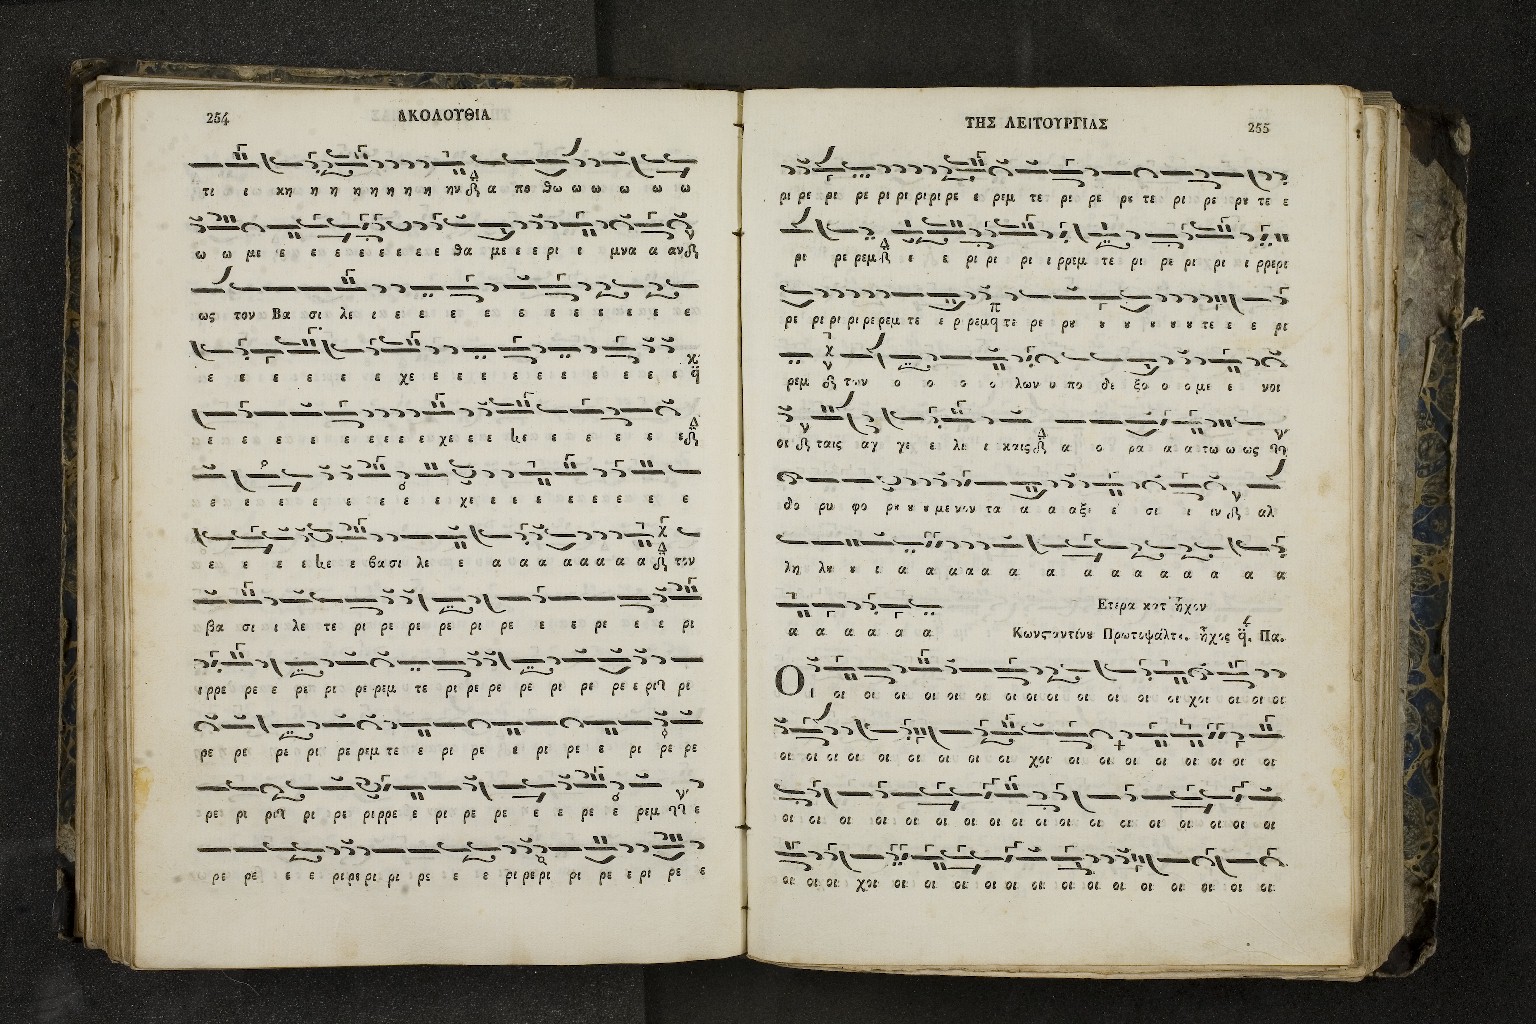 254
ΑΚΟΛΟΥΘΙΑ
τι ι κη η η η η η η η ην α πο θω ω ω ω ω ω
ω ω με ε ε ε ε ε ε ε ε θα με ε ε ρι ε μνα α αν
ως τον Βα σι λε ι ε ε ε ε ε ε ε ε ε ε ε
ε ε ε ε ε ε χε ε ε ε ε ε ε ε ε ε ε ε
ε ε ε ε ε ε ε ε ε χε ε ε ε ε ε ε ε ε
ε ε ε ε ε ε ε ε χε ε ε ε ε ε ε ε
ε ε ε ε ε ε βα σι λε ε α α α α α α α α τον
βα σι ι λε τε ρι ρε ρε ρε ρι ρε ε ε ρε ε ε ρι
ιρρε ρε ε ρε ρι ρε ρεμ τε ρι ρε ρε ρε ρι ρε ρε ε ρι ρι
ρε ρε ρε ρι ρε ρεμ τε ε ρι ρε ε ρι ρε ε ρι ρε ρε
ρε ρι ρι ρι ρε ριρρε ε ρι ρε ρε ε ε ρε ε ρεμ ε
ρε ρε ε ε ρι ρε ρι ρι ρε ε ε ρι ρε ρι ρι ρε ε ρι ρε ε
ΤΗΣ ΛΕΙΤΟΥΡΓΙΑΣ
255
ρι ρε ρι ρε ρι ρι ρι ρι ρε ε ριμ τε ρι ρε ρυ τε ρι ρε ρυ τε ε
ρι ρε ρεμ ε ε ρι ρι ρι ι ρρεμ τε ρι ρε ρι ρι ι ρρερι
ρε ρι ρι ρι ρε ρεμ τε ε ρι ρεμ τε ρε ρυ υ υ υ υ υ τε ε ε ρι
ρεμ των ο ο ο ο λων υ πο δε ξο ο ο με ε νοι
οι ταις αγ γε ε λι ι καις α ο ρα α α τω ω ως
δο ρυ φο ρυ υ υ με νον τα α α α αξε ε σι ι ιν αλ
λη λυ υ ι α α α α α α α α α α α α α α
α α α α α α
Ετερα κατ' ἦχον
Κωνσταντίνυ Πρωτοψάλτυ. ἦχος Πα.
Οι οι οι οι οι οι οι οι οι οι οι οι οι οι οι χοι οι οι οι
οι οι οι οι οι οι οι οι οι χοι οι οι οι οι οι οι οι οι
οι οι οι οι οι οι οι οι οι οι οι οι οι οι οι οι οι
οι οι οι χοι οι οι οι οι οι οι οι οι οι οι οι οι